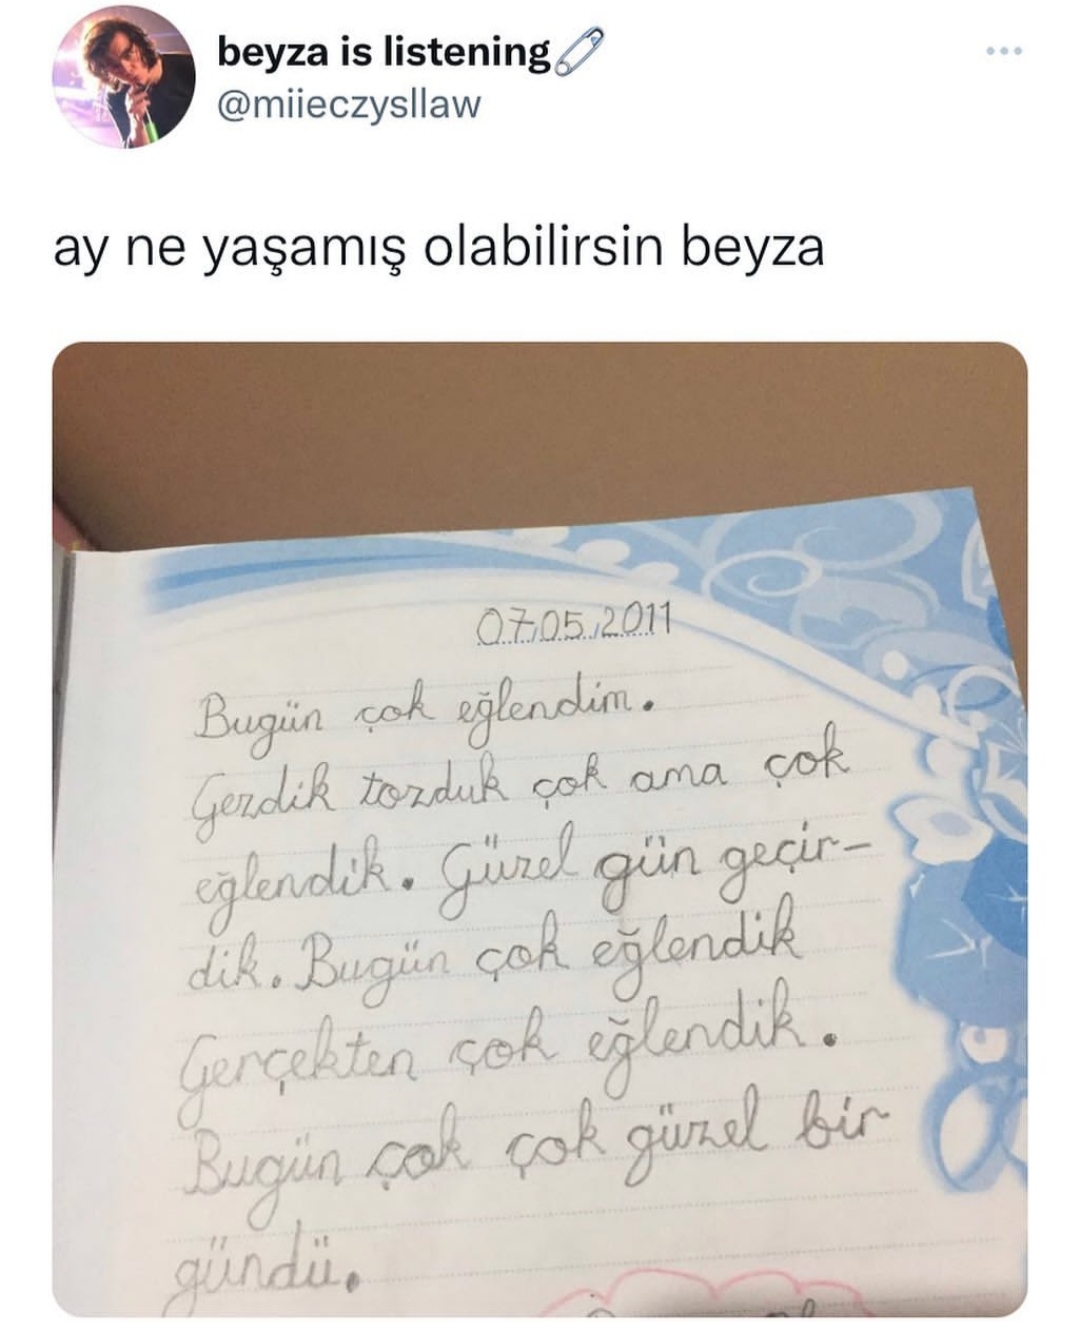 beyza is listening
@miieczysllaw
ay ne yaşamış olabilirsin beyza
07.05.2011
Bugün çok eğlendim.
Gezdik tozduk çok ama çok
eğlendik. Güzel gün geçir-
dik. Bugün çok eğlendik
Gerçekten çok eğlendik.
Bugün çok çok güzel bir
gündü.